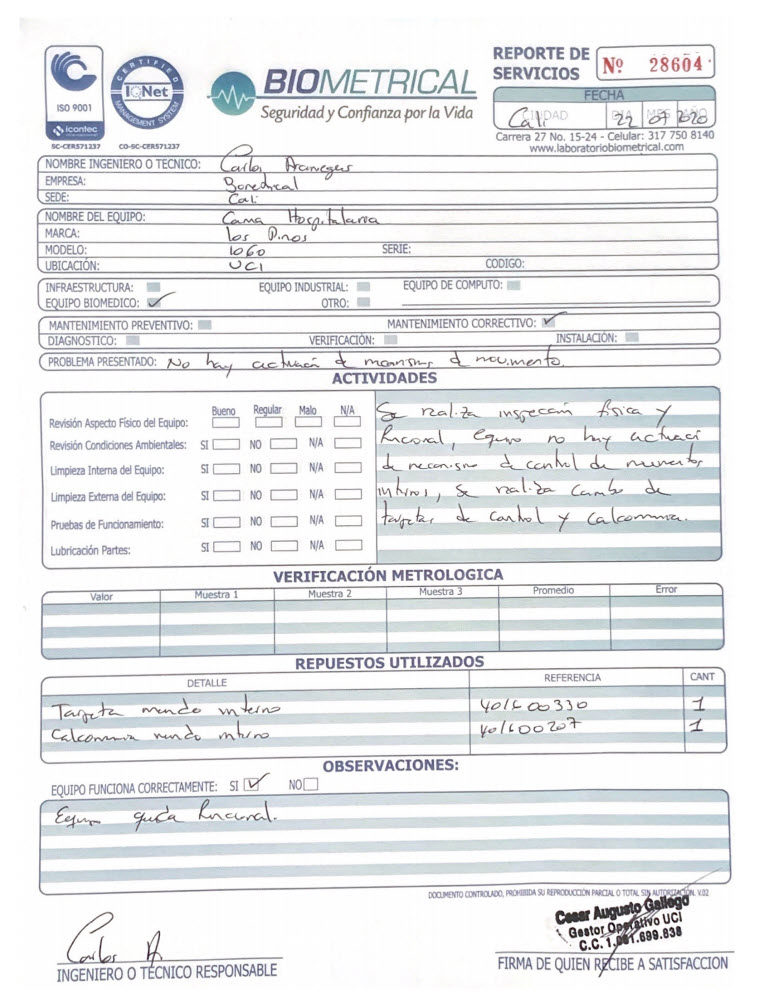 REPORTE DE
SERVICIOS
Nº 28604
ISO 9001
icontec
SC-CER571237
CERTIFIED
IQNet
MANAGEMENT SYSTEM
CO-SC-CER571237
BIOMETRICAL
Seguridad y Confianza por la Vida
FECHA
CIUDAD DIA MES AÑO
Cali 22 07 2020
Carrera 27 No. 15-24 - Celular: 317 750 8140
www.laboratoriobiometrical.com
NOMBRE INGENIERO O TECNICO: Carlos
EMPRESA:
SEDE: Cali
NOMBRE DEL EQUIPO: Cama Hospitalaria
MARCA: Los Pinos
MODELO: 1060 SERIE:
UBICACIÓN: UCI CODIGO:
INFRAESTRUCTURA: EQUIPO INDUSTRIAL: EQUIPO DE COMPUTO:
EQUIPO BIOMEDICO: OTRO:
MANTENIMIENTO PREVENTIVO: MANTENIMIENTO CORRECTIVO:
DIAGNOSTICO: VERIFICACIÓN: INSTALACIÓN:
PROBLEMA PRESENTADO: No hay de de movimento.
ACTIVIDADES
Bueno Regular Malo N/A
Revisión Aspecto Físico del Equipo:
Revisión Condiciones Ambientales: SI NO N/A
Limpieza Interna del Equipo: SI NO N/A
Limpieza Externa del Equipo: SI NO N/A
Pruebas de Funcionamiento: SI NO N/A
Lubricación Partes: SI NO N/A
Se realiza inspección física y
funcional, equipo no hay
de mecanismo de control de
internos, se realiza cambio de
tarjetas de control y
VERIFICACIÓN METROLOGICA
Valor Muestra 1 Muestra 2 Muestra 3 Promedio Error
REPUESTOS UTILIZADOS
DETALLE REFERENCIA CANT
Tarjeta mando interno 401600330 1
mando interno 401600207 1
OBSERVACIONES:
EQUIPO FUNCIONA CORRECTAMENTE: SI NO
Equipo queda funcional.
DOCUMENTO CONTROLADO, PROHIBIDA SU REPRODUCCIÓN PARCIAL O TOTAL SIN AUTORIZACIÓN. V.02
Cesar Augusto Gallego
Gestor Operativo UCI
C.C. 1.061.699.838
Carlos A.
INGENIERO O TÉCNICO RESPONSABLE
FIRMA DE QUIEN RECIBE A SATISFACCION